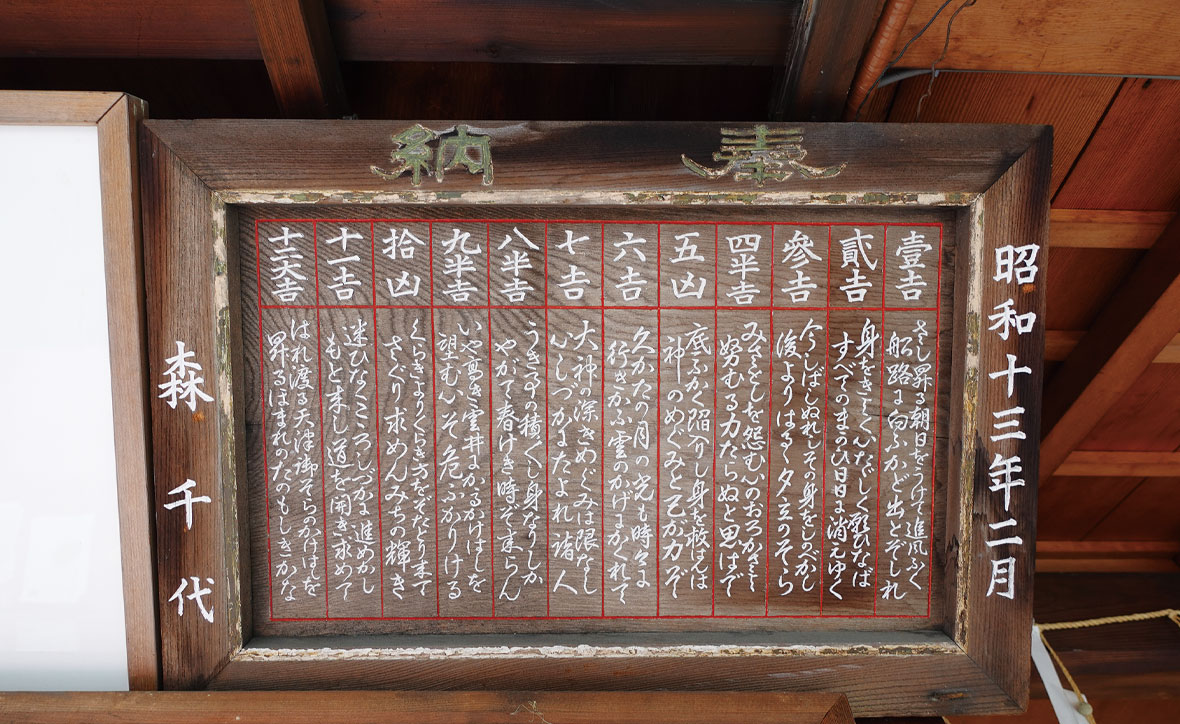 奉納
昭和十三年二月
壹吉
さし昇る朝日をうけて追風ふく
船路に向ふかど出とぞしれ
貳吉
身をきよく心たゞしく願ひなば
すべての日日に消えゆく
參吉
今しばしぬれしその身をしのべかし
後よりはるゝ夕立のそら
四半吉
みさとしを怨む心のおろかさよ
努むる力たらぬと思はで
五凶
底ふかく陷りし身を救はんは
神のめぐみと己が力ぞ
六吉
久かたの月の光も時々に
行きかふ雲のかげにかくれて
七吉
大神の深きめぐみは限なし
心しづかにたよれ諸人
八半吉
うき事の積りし身なりしか
やがて春けき時ぞ來らん
九半吉
いや高き雲井にかゝるかけはしを
望むこそ危ふかりける
拾凶
くらきよりくらき方をぞたどり來て
さぐり求めんみちの輝き
十一吉
迷ひなくこころしづかに進めかし
もと來し道を開き求めて
十二大吉
はれ渡る天津御そらのかけはしを
昇るほまれのたのもしきかな
森千代